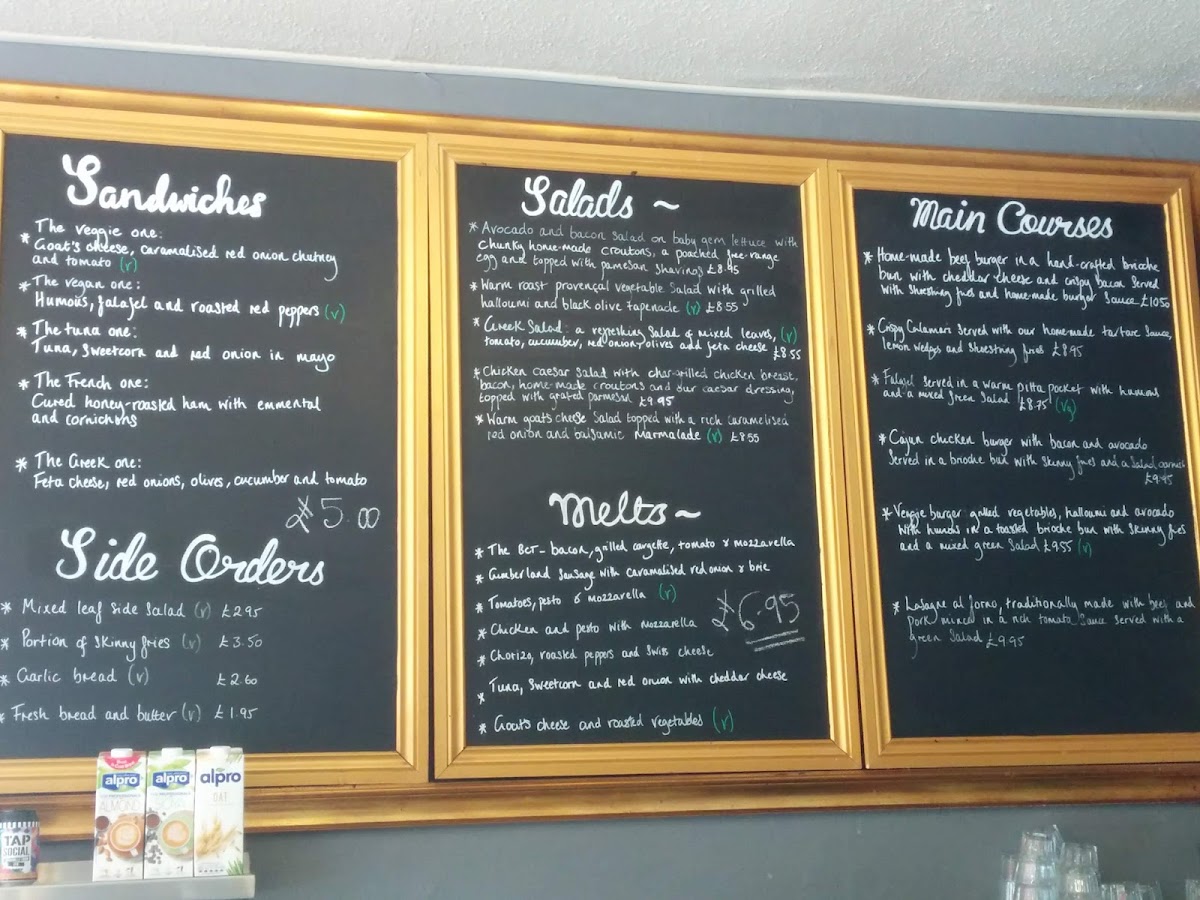 Sandwiches
* The veggie one:
Goat's cheese, caramalised red onion chutney
and tomato (v)
* The vegan one:
Humous, falafel and roasted red peppers (v)
* The tuna one:
Tuna, sweetcorn and red onion in mayo
* The French one:
Cured honey-roasted ham with emmental
and cornichons
* The Greek one:
Feta cheese, red onions, olives, cucumber and tomato
£5.00
Side Orders
* Mixed leaf side salad (v) £2.95
* Portion of skinny fries (v) £3.50
* Garlic bread (v) £2.60
* Fresh bread and butter (v) £1.95
Salads ~
* Avocado and bacon salad on baby gem lettuce with
chunky home-made croutons, a poached free-range
egg and topped with parmesan shavings £8.95
* Warm roast provençal vegetable salad with grilled
halloumi and black olive tapenade (v) £8.55
* Greek Salad: a refreshing salad of mixed leaves, (v)
tomato, cucumber, red onion, olives and feta cheese £8.55
* Chicken caesar salad with char-grilled chicken breast,
bacon, home-made croutons and our caesar dressing,
topped with grated parmesan £9.95
* Warm goat's cheese salad topped with a rich caramelised
red onion and balsamic marmalade (v) £8.55
Melts ~
* The BCT - bacon, grilled corgette, tomato & mozzarella
* Cumberland sausage with caramalised red onion & brie
* Tomatoes, pesto & mozzarella (v)
* Chicken and pesto with mozzarella
* Chorizo, roasted peppers and swiss cheese
* Tuna, sweetcorn and red onion with cheddar cheese
* Goat's cheese and roasted vegetables (v)
£6.95
Main Courses
* Home-made beef burger in a hand-crafted brioche
bun with cheddar cheese and crispy bacon served
with shoestring fries and home-made burger sauce £10.50
* Crispy Calamari served with our home-made tartare sauce,
lemon wedges and shoestring fries £8.95
* Falafel served in a warm pitta pocket with humous
and a mixed green salad £8.75 (vg)
* Cajun chicken burger with bacon and avocado
served in a brioche bun with skinny fries and a salad garnish
£9.95
* Veggie burger: grilled vegetables, halloumi and avocado
with humous in a toasted brioche bun with skinny fries
and a mixed green salad £9.55 (v)
* Lasagne al forno, traditionally made with beef and
pork mince in a rich tomato sauce served with a
green salad £9.95
alpro
ALMOND
alpro
alpro
OAT
TAP
SOCIAL